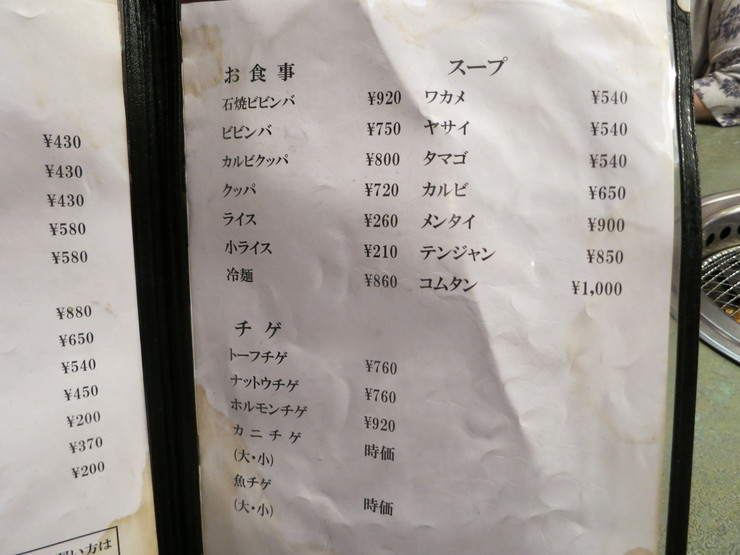 ¥430
¥430
¥430
¥580
¥580
¥880
¥650
¥540
¥450
¥200
¥370
¥200
い方は
お食事
石焼ビビンバ ¥920
ビビンバ ¥750
カルビクッパ ¥800
クッパ ¥720
ライス ¥260
小ライス ¥210
冷麺 ¥860
チゲ
トーフチゲ ¥760
ナットウチゲ ¥760
ホルモンチゲ ¥920
カニチゲ
(大・小) 時価
魚チゲ
(大・小) 時価
スープ
ワカメ ¥540
ヤサイ ¥540
タマゴ ¥540
カルビ ¥650
メンタイ ¥900
テンジャン ¥850
コムタン ¥1,000